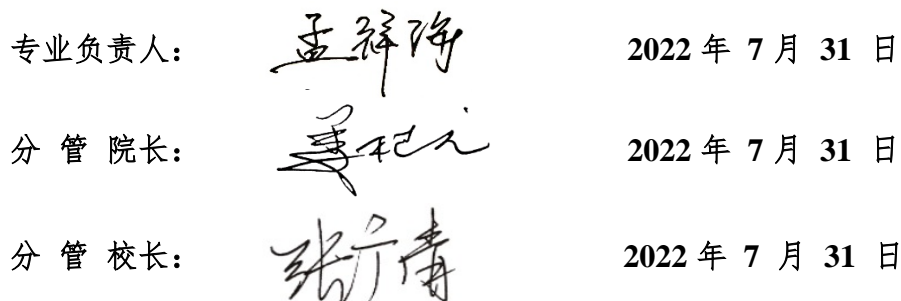 专业负责人： 孟祥 2022 年 7 月 31 日
分 管 院长： 姜 2022 年 7 月 31 日
分 管 校长： 张广青 2022 年 7 月 31 日